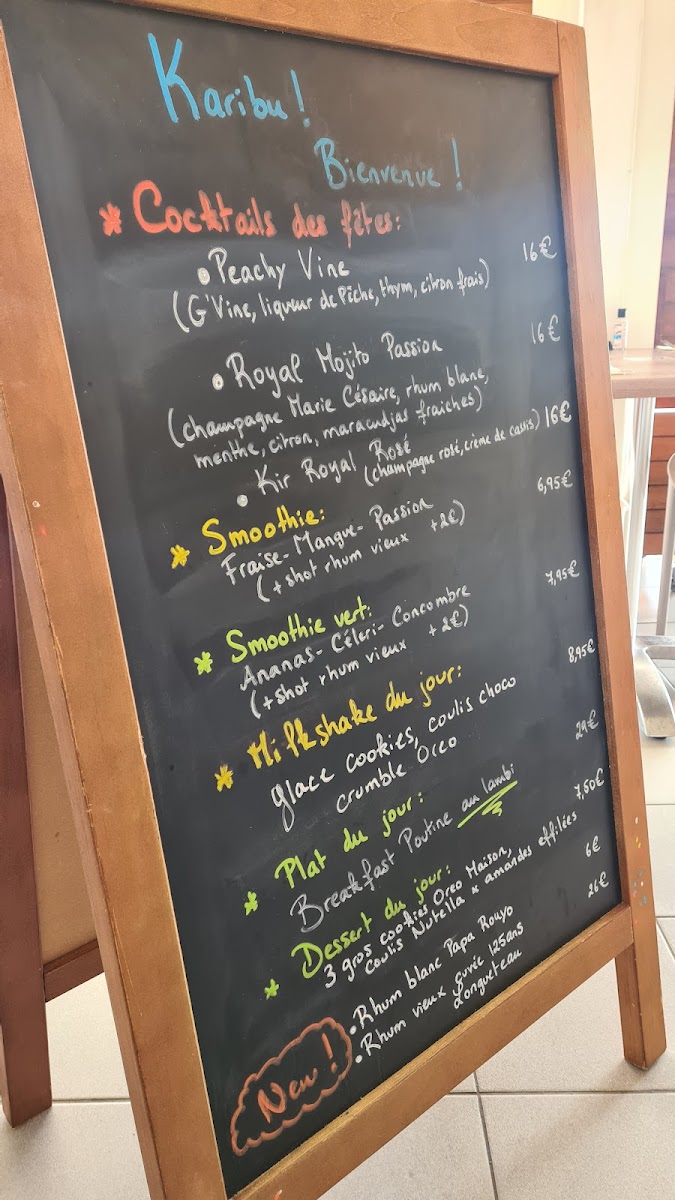 Karibu !
Bienvenue !
* Cocktails des fêtes :
• Peachy Vine 16€
(G'Vine, liqueur de Pêche, thym, citron frais)
• Royal Mojito Passion 16€
(champagne Marie Césaire, rhum blanc,
menthe, citron, maracudjas fraiches)
• Kir Royal Rosé (champagne rosé, crème de cassis) 16€
* Smoothie : 6,95€
Fraise - Mangue - Passion
(+ shot rhum vieux +2€)
* Smoothie vert : 7,95€
Ananas - Céleri - Concombre
(+ shot rhum vieux +2€)
* Milkshake du jour : 8,95€
glace cookies, coulis choco
crumble Oreo
* Plat du jour : 29€
Breakfast Poutine au lambi
* Dessert du jour : 7,50€
3 gros cookies Oreo Maison,
coulis Nutella x amandes effilées
New !
• Rhum blanc Papa Rouyo 6€
• Rhum vieux cuvée 125ans 26€
Longueteau